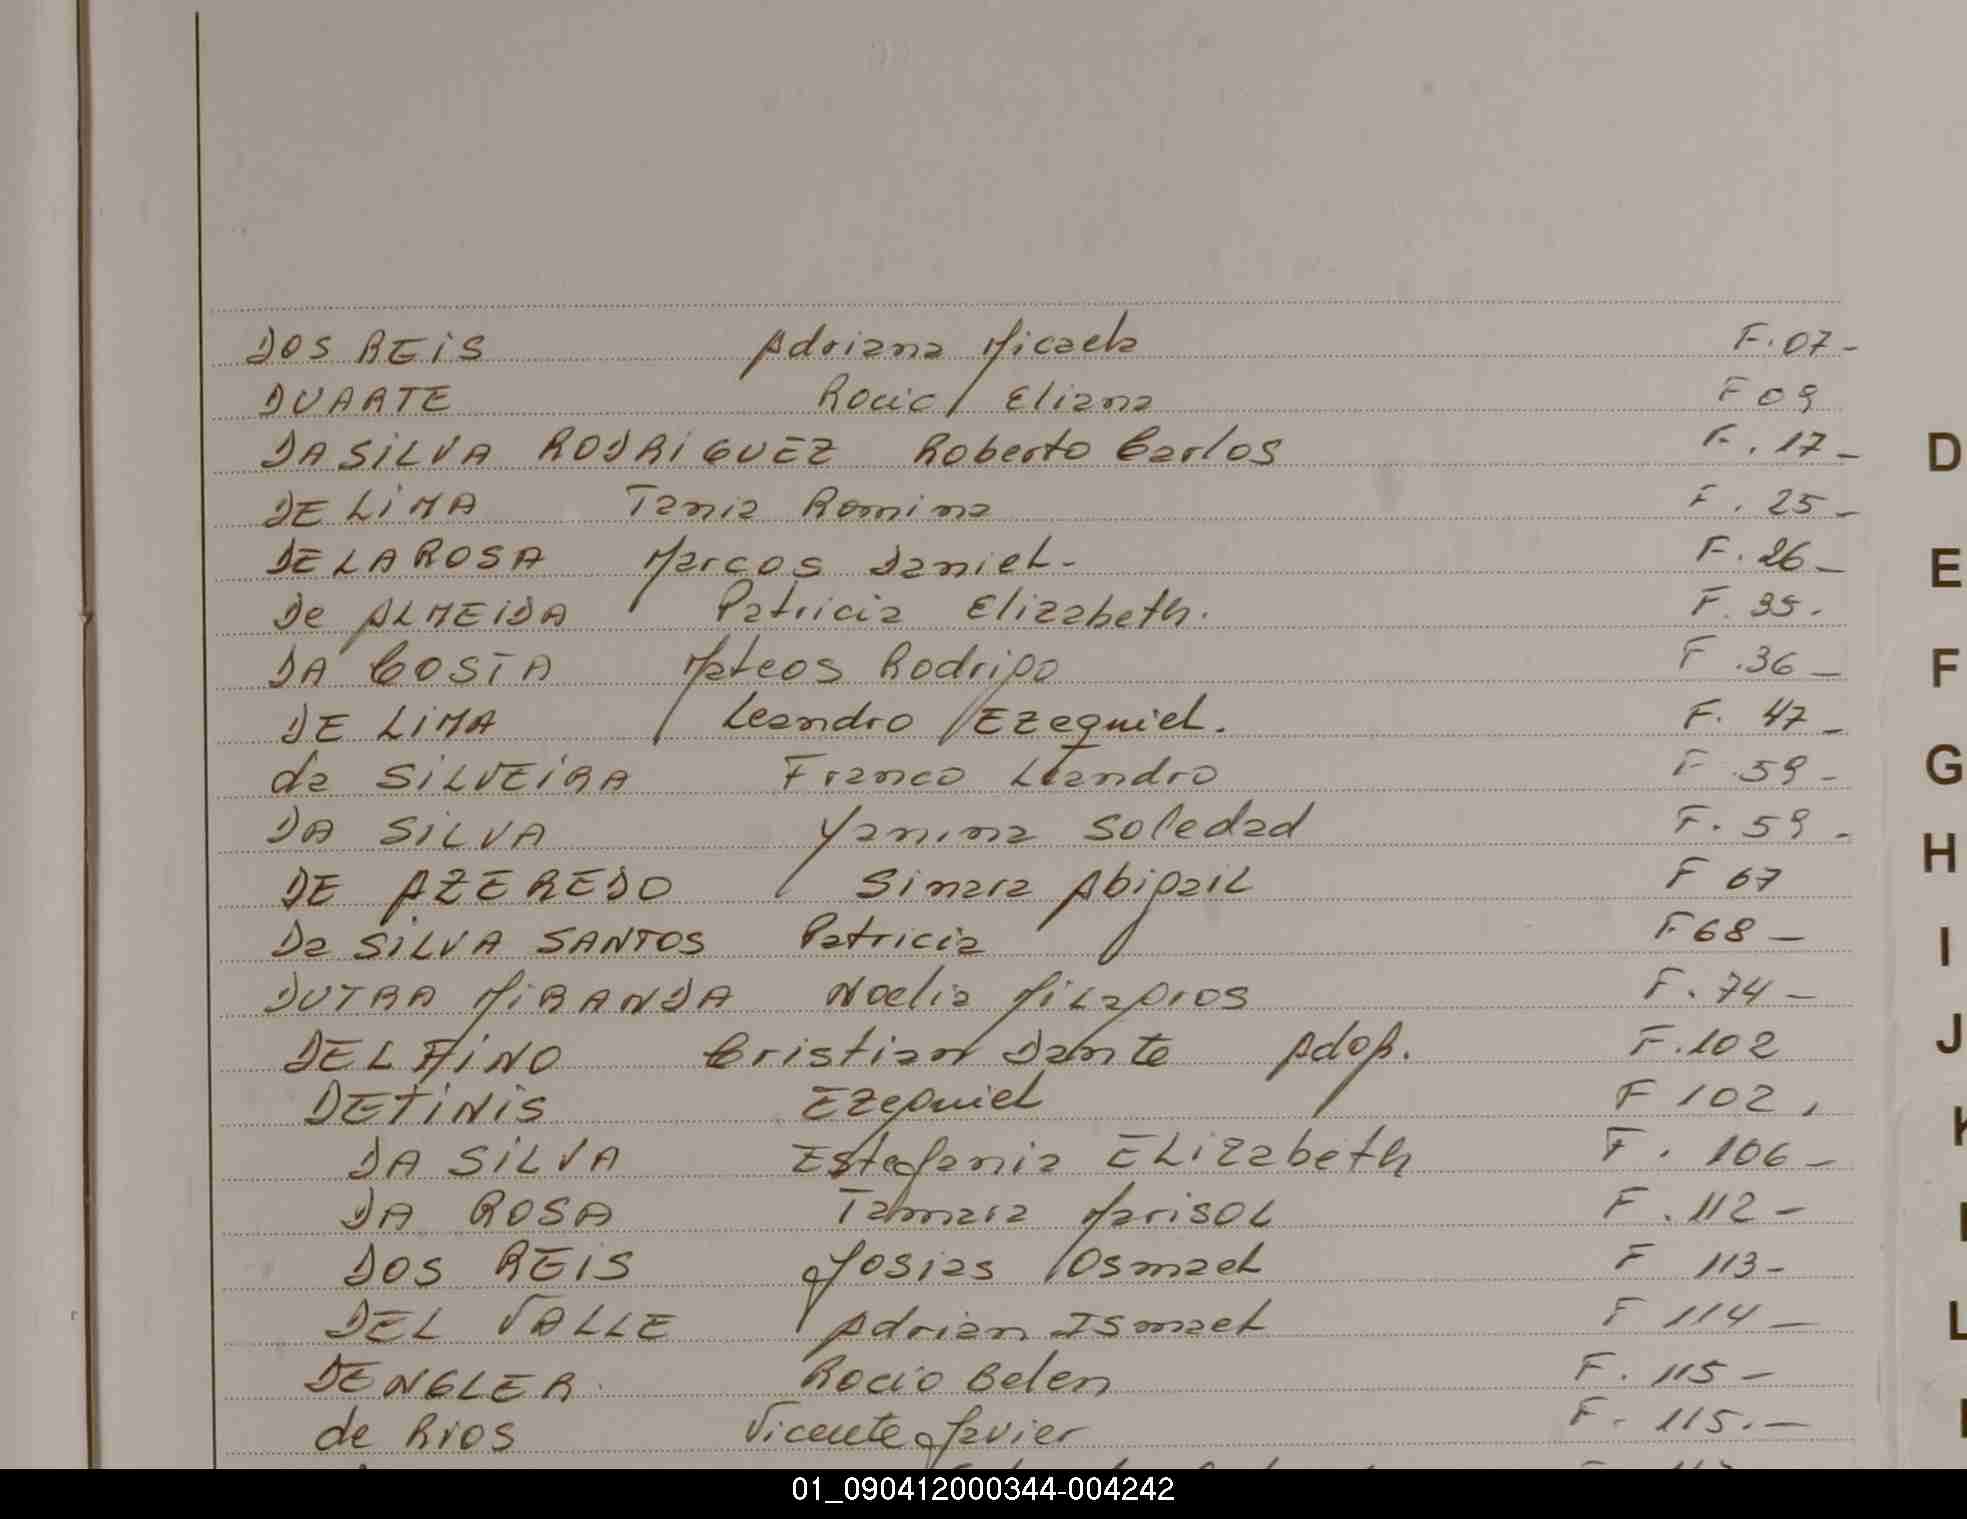 DOS REIS Adriana Micaela F.07-
DUARTE Rocio Eliana F 09
DA SILVA RODRIGUEZ Roberto Carlos F. 17-
D
DE LIMA Tania Romina F. 25-
DE LA ROSA Marcos Daniel- F. 26-
E
De ALMEIDA Patricia Elizabeth. F. 35.
DA COSTA Mateos Rodrigo F .36-
F
DE LIMA Leandro Ezequiel. F. 47-
da SILVEIRA Franco Leandro F 59-
G
DA SILVA Yanina Soledad F. 59-
H
DE AZEREDO Sinara Abigail F 67
Da SILVA SANTOS Patricia F 68-
I
DUTRA MIRANDA Noelia Milagros F. 74-
DELFINO Cristian Dante Adop. F.102
J
DETINIS Ezequiel F 102.
K
DA SILVA Estefania Elizabeth F. 106-
DA ROSA Tamara Marisol F. 112-
DOS REIS Josias Osmael F 113-
DEL VALLE Adrian Ismael F 114-
L
DENGLER Rocio Belen F. 115-
de Rios Vicente Javier F. 115.-
01_090412000344-004242